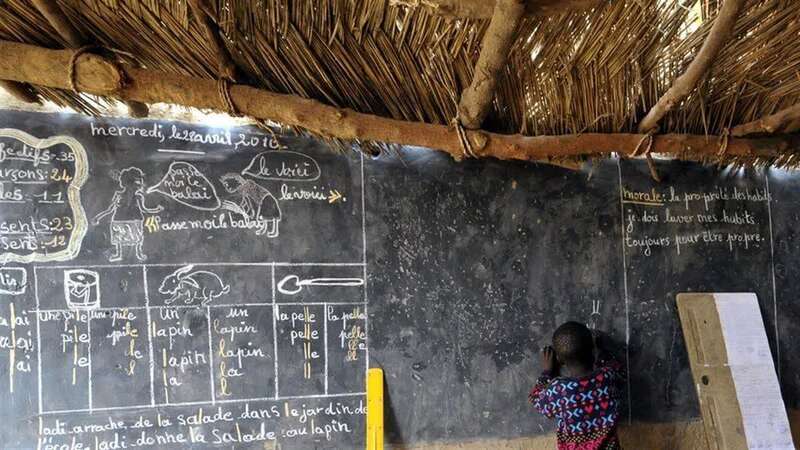 mercredi, le 28 avril, 2010
effectifs = 35
garçons: 24
les - 11
sents: 23
sents: 12
passe moi le balai
le voici
le voici
Passe moi le balai
morale: la propreté des habits
je dois laver mes habits
toujours pour être propre.
lin
une pile
pile
le
une pile
pile
le
l
un lapin
lapin
la
un lapin
lapin
la
l
la pelle
pelle
lle
la pelle
pelle
lle
ll
ladi arrache de la salade dans le jardin de
l'école. ladi donne la salade au lapin